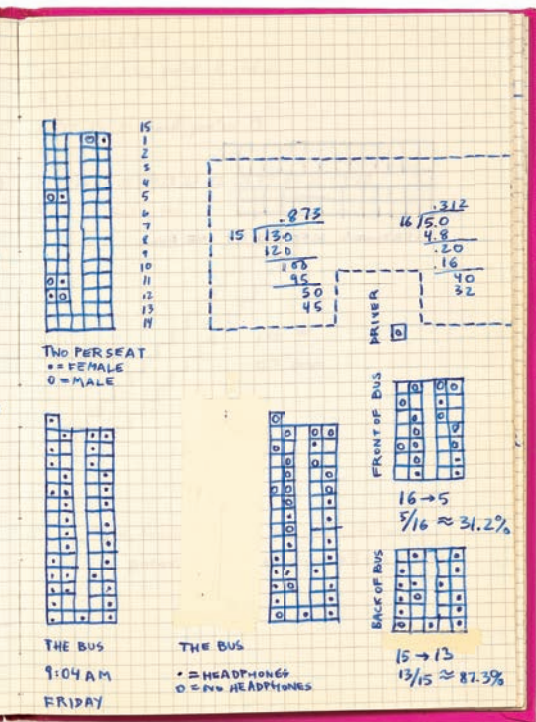 15
1
2
3
4
5
6
7
8
9
10
11
12
13
14
TWO PER SEAT
• = FEMALE
O = MALE
.873
15 130
120
100
95
50
45
.312
16 5.0
4.8
.20
.16
40
32
DRIVER
FRONT OF BUS
16 → 5
5/16 ≈ 31.2%
BACK OF BUS
15 → 13
13/15 ≈ 87.3%
THE BUS
9:04 AM
FRIDAY
THE BUS
• = HEADPHONES
O = NO HEADPHONES